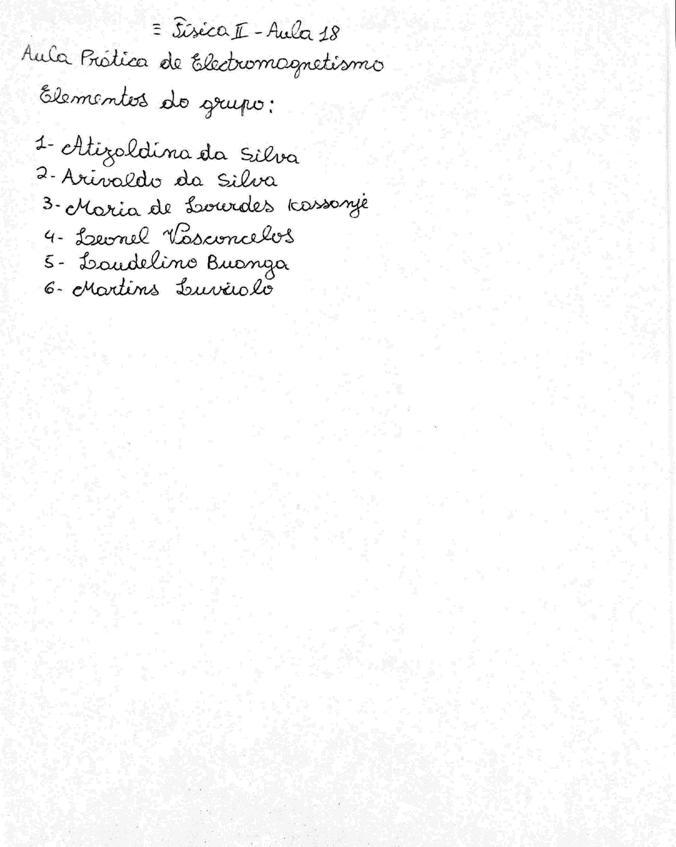 = Física II - Aula 18
Aula Prática de Electromagnetismo
Elementos do grupo:
1- Atizaldina da Silva
2- Arivaldo da Silva
3- Maria de Lourdes Kassanje
4- Leonel Vasconcelos
5- Laudelino Buanga
6- Martins